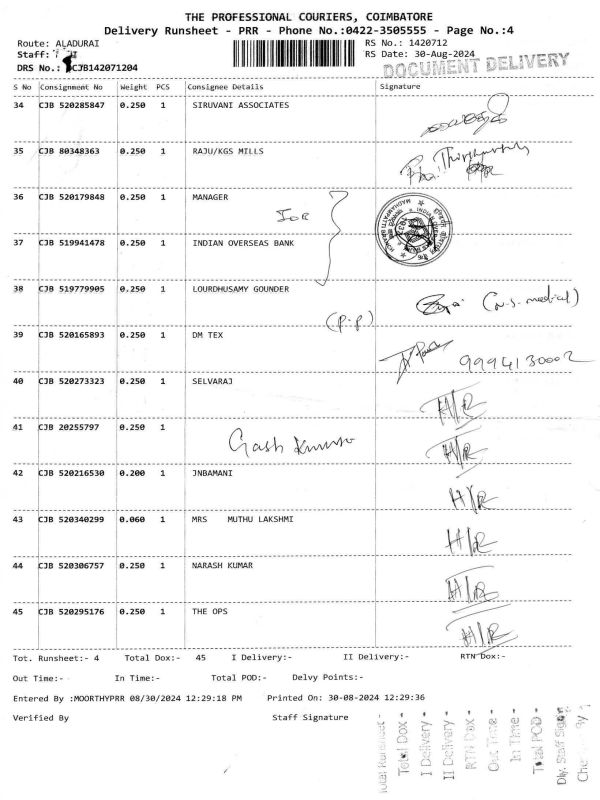 THE PROFESSIONAL COURIERS, COIMBATORE
Delivery Runsheet - PRR - Phone No.:0422-3505555 - Page No.:4
Route: ALADURAI
RS No.: 1420712
Staff:
RS Date: 30-Aug-2024
DRS No.: CJB142071204
DOCUMENT DELIVERY
S No Consignment No Weight PCS Consignee Details Signature
34 CJB 520285847 0.250 1 SIRUVANI ASSOCIATES
35 CJB 80348363 0.250 1 RAJU/KGS MILLS
36 CJB 520179848 0.250 1 MANAGER
IOB
37 CJB 519941478 0.250 1 INDIAN OVERSEAS BANK
38 CJB 519779905 0.250 1 LOURDHUSAMY GOUNDER
(N.S. medical)
(P.P)
39 CJB 520165893 0.250 1 DM TEX
9994130002
40 CJB 520273323 0.250 1 SELVARAJ
H/R
41 CJB 20255797 0.250 1
H/R
42 CJB 520216530 0.200 1 JNBAMANI
H/R
43 CJB 520340299 0.060 1 MRS MUTHU LAKSHMI
H/R
44 CJB 520306757 0.250 1 NARASH KUMAR
H/R
45 CJB 520295176 0.250 1 THE OPS
H/R
Tot. Runsheet:- 4 Total Dox:- 45 I Delivery:- II Delivery:- RTN Dox:-
Out Time:- In Time:- Total POD:- Delvy Points:-
Entered By :MOORTHYPRR 08/30/2024 12:29:18 PM Printed On: 30-08-2024 12:29:36
Verified By Staff Signature
Total Runsheet -
Total Dox -
I Delivery -
II Delivery -
RTN Dox -
Out Time -
In Time -
Total POD -
Dly. Staff Sign